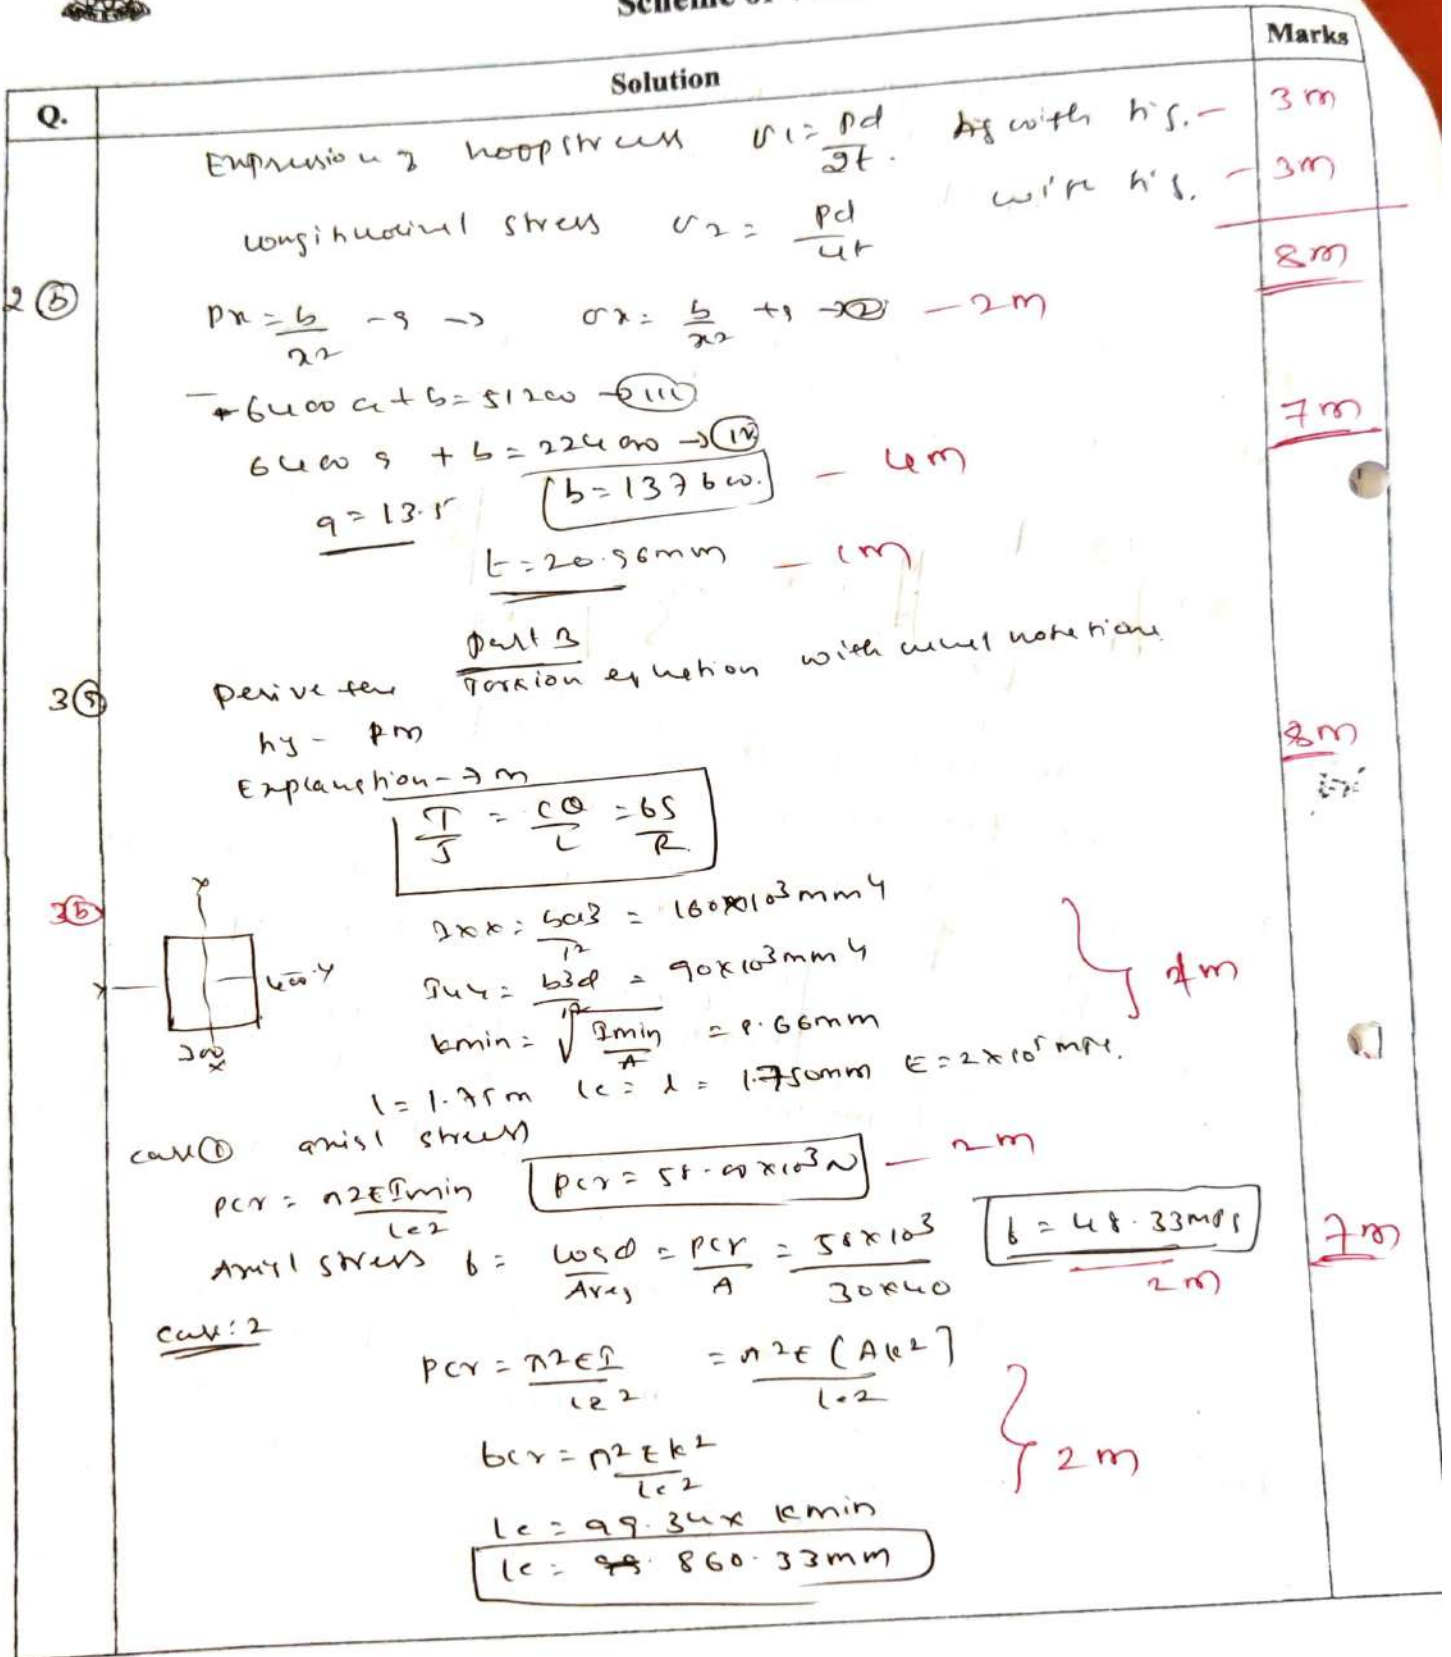 Marks
Q. Solution
hoop stress σ1 = pd/2t. fig with h's. - 3m
longitudinal stress σ2 = pd/4t with h's. - 3m
8m
2(b) px = b/x2 - a → σx = b/x2 + a → (2) - 2m
-6400 a + b = 51200 → (iii)
7m
6400 a + b = 224000 → (iv)
a = 13.5 b = 137600. - 4m
t = 20.96mm - 1m
Part B
3(a) Derive the Torsion equation with usual notations
8m
Explanation - 7m
T/J = Cθ/L = fs/R
3(b) Ixx = bd3/12 = 160×103 mm4
Y 400 Y
Iyy = b3d/12 = 90×103 mm4
2m
300
x
kmin = √Imin/A = 8.66mm
l = 1.75m le = l = 1750mm E = 2×105 MPa.
case (1) axial stress
Pcr = π2EImin/le2 Pcr = 58.00×103N - 2m
Axial stress f = Load/Area = Pcr/A = 58×103/30×40 f = 48.33MPa 7m
2m
case: 2
Pcr = π2EI/le2 = π2E(Ak2]/le2
fcr = π2Ek2/le2 2m
le = 99.34× kmin
le = 860.33mm